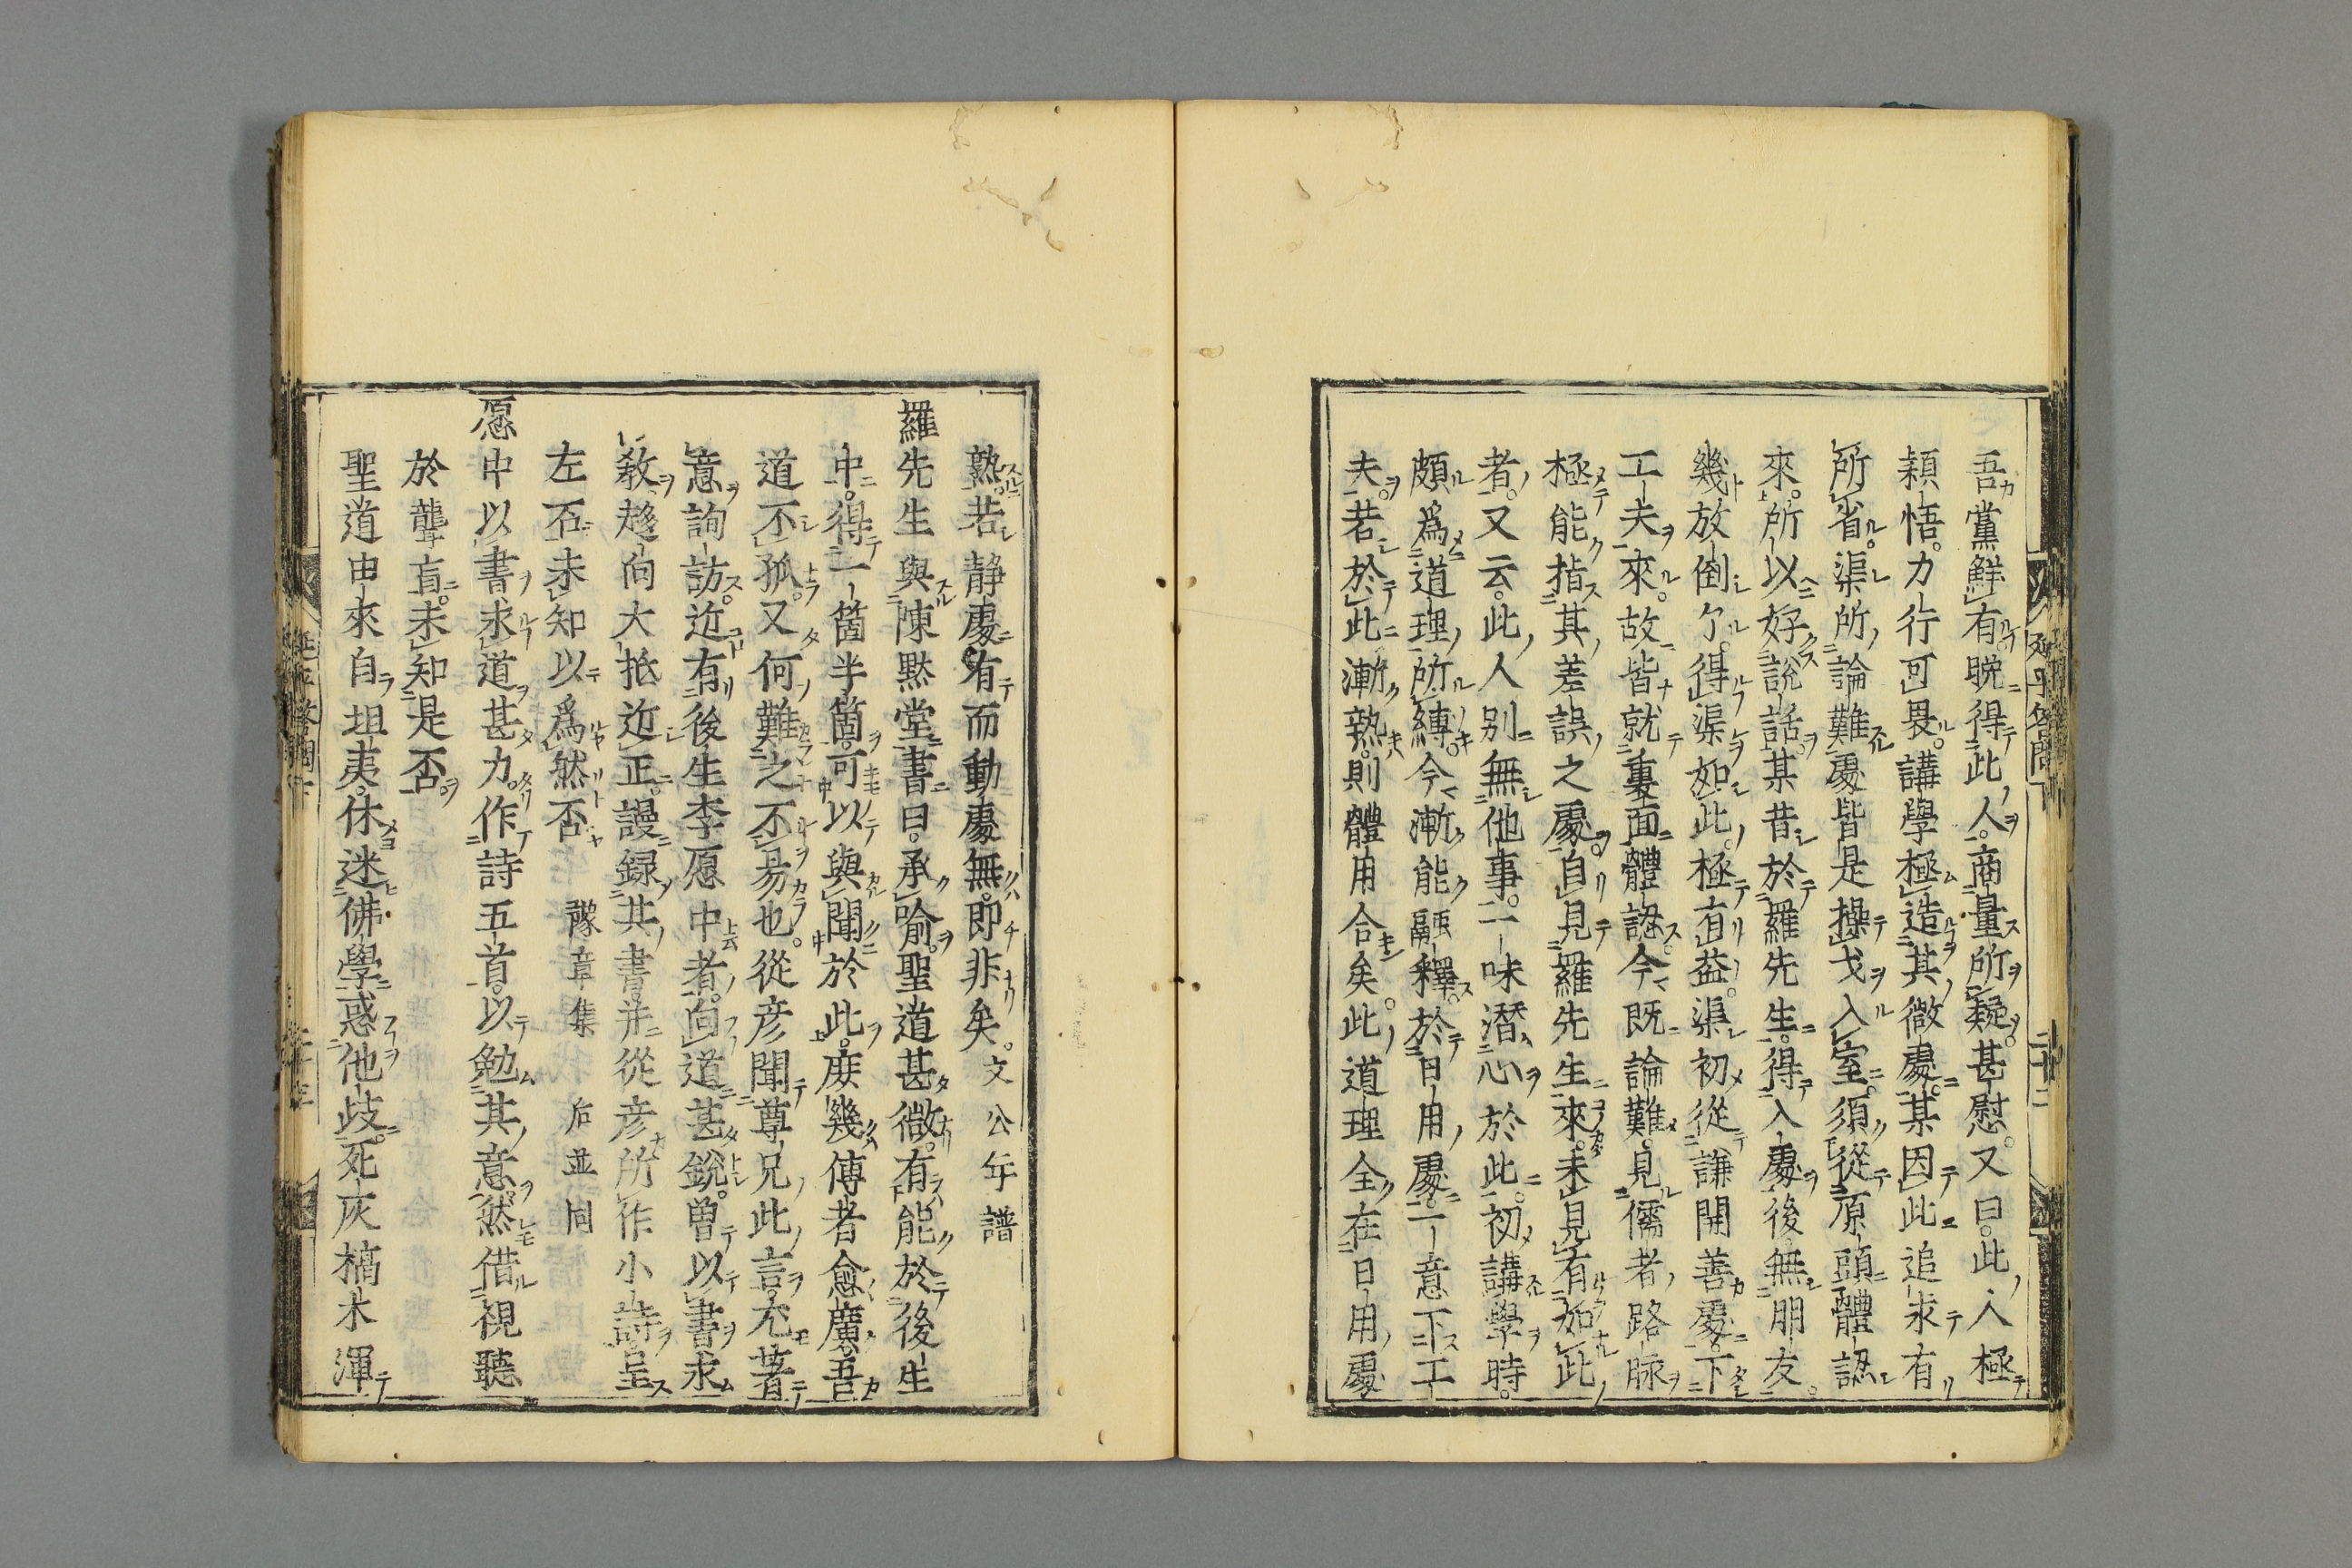 吾黨鮮有晚得此人商量所疑甚慰又曰此人極
穎悟力行可畏講學極造其微處某因此追求有
所省渠所論難處皆是操戈入室須從原頭體認
來所以好說話某昔於羅先生得入處後無朋友
幾放倒了得渠如此極有益渠初從謙開善處下
工夫來故皆就裏面體認今既論難見儒者路脉
極能指其差誤之處自見羅先生來未見有如此
者又云此人別無他事一味潛心於此初講學時
頗爲道理所縛今漸能融釋於日用處一意下工
夫若於此漸熟則體用合矣此道理全在日用處
熟若静處有而動處無即非矣文公年譜
羅先生與陳默堂書曰承喻聖道甚微有能於後生
中得一箇半箇可以與聞於此庻幾傳者愈廣吾
道不孤又何難之不易也從彦聞尊兄此言充著
意詢訪近有後生李愿中者向道甚銳曽以書求
教趍向大抵近正謾録其書并從彦所作小詩呈
左右未知以爲然否 豫章集 后並同
愿中以書求道甚力作詩五首以勉其意然借視聽
於聾盲未知是否
聖道由來自坦夷休迷佛學惑他歧死灰槁木渾